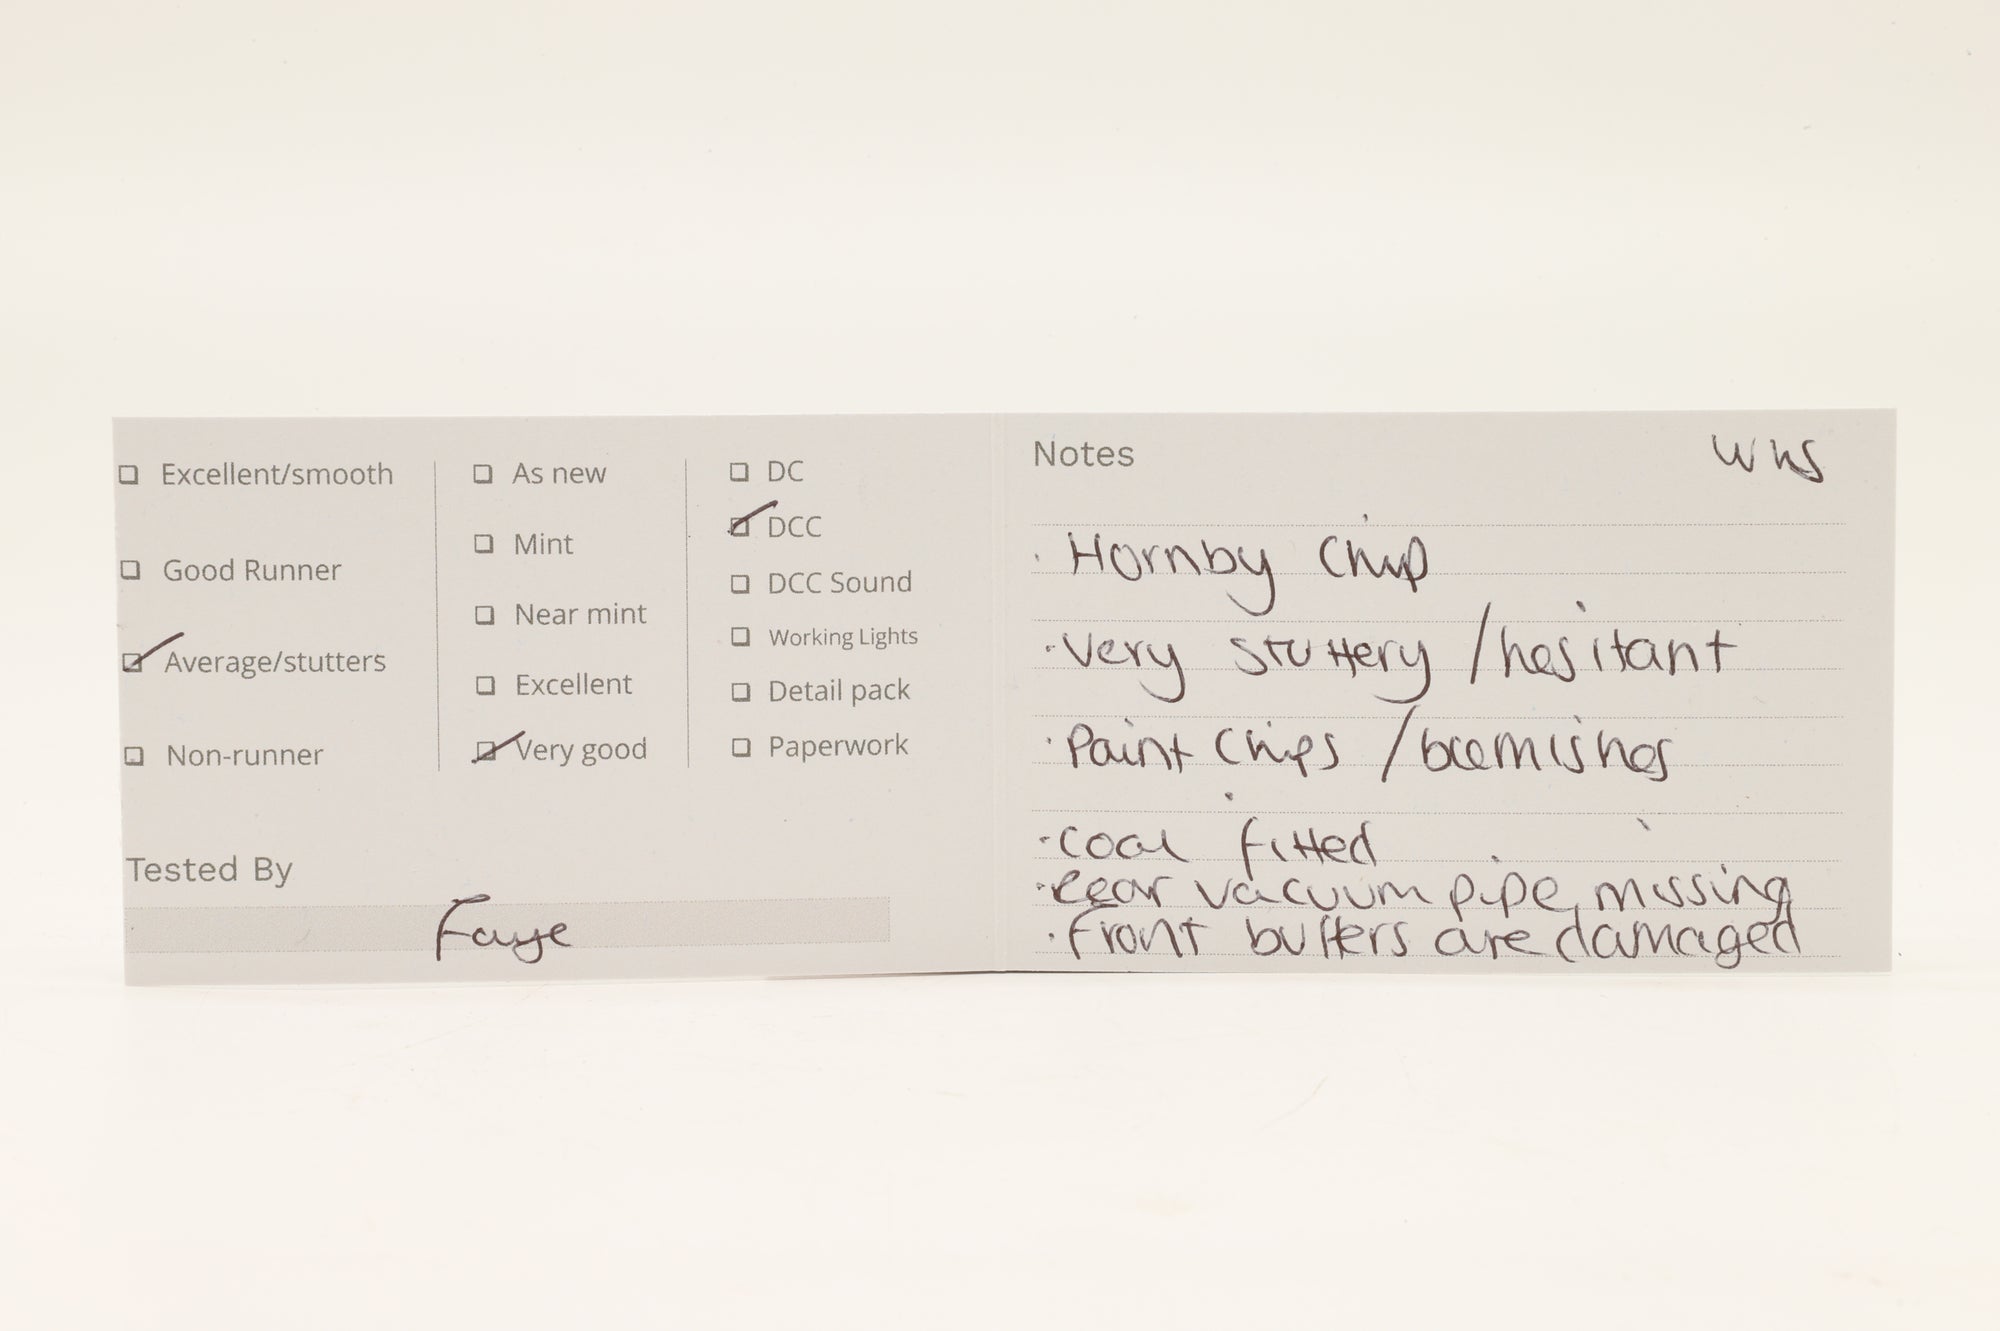 Excellent/smooth
Good Runner
Average/stutters
Non-runner
As new
Mint
Near mint
Excellent
Very good
DC
DCC
DCC Sound
Working Lights
Detail pack
Paperwork
Tested By
Faye
Notes
· Hornby Chip
· Very stuttery / hesitant
· Paint Chips / blemishes
· coal fitted
· rear vacuum pipe missing
· Front buffers are damaged